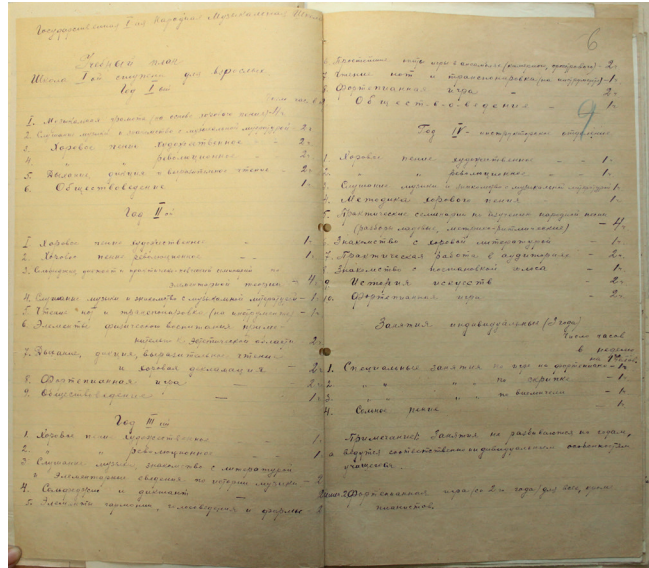 Государственная I ая Народная Музыкальная Школа
Учебный план
Школа I ой ступени для взрослых
Год I ый
1. Музыкальная грамота (на основе хорового пения) - 4 ч.
2. Слушание музыки и знакомство с музыкальной литературой - 2 ч.
3. Хоровое пение художественное - 2 ч.
4. " " революционное - 2 ч.
5. Дыхание, дикция и выразительное чтение - 2 ч.
6. Обществоведение 1 ч.
Год II ой
1. Хоровое пение художественное - 1 ч.
2. Хоровое пение революционное - 1 ч.
элементами теории - 4 ч.
4. Слушание музыки и знакомство с музыкальной литературой - 1 ч.
5. Чтение нот и транспонировка (на инструменте) - 1 ч.
6. Элементы физического воспитания
7. Дыхание, дикция, выразительное чтение
и хоровая декламация - 2 ч.
8. Фортепианная игра - 2 ч.
9. Обществоведение - 1 ч.
Год III ий
1. Хоровое пение художественное - 1 ч.
2. " " революционное - 1 ч.
3. Слушание музыки, знакомство с литературой
и элементарные сведения по истории музыки - 2
4. Сольфеджио и диктант - 2
5. Элементы гармонии, голосоведения и формы - 2
6
7. Чтение нот и транспонировка (на инструменте) - 1 ч.
8. Фортепианная игра - 2 ч.
9 Обществоведение - 1 ч.
9
Год IV - инструкторское отделение
1. Хоровое пение художественное - 1 ч.
" " революционное - 1 ч.
3. Слушание музыки и знакомство с музыкальной литературой 1 ч.
4. Методика хорового пения - 1 ч.
5. Практические семинарии по изучению народной песни
- 4 ч.
6. Знакомство с хоровой литературой - 1 ч.
7. Практическая работа в аудиториях - 2 ч.
8. Знакомство с постановкой голоса - 1 ч.
9 История искусств - 2 ч.
10. Фортепианная игра - 2 ч.
Занятия индивидуальные (с 2 года)
Число часов
в неделю
1. Специальные занятия по игре на фортепиано - 1 ч.
2 " " " по скрипке - 1 ч.
3 " " " по виолончели - 1 ч.
4. Сольное пение - 1 ч.
Примечание: Занятия не разбиваются по годам,
а ведутся соответственно индивидуальным особенностям
учащихся.
Фортепианная игра с 2-го года для всех, кроме
пианистов.